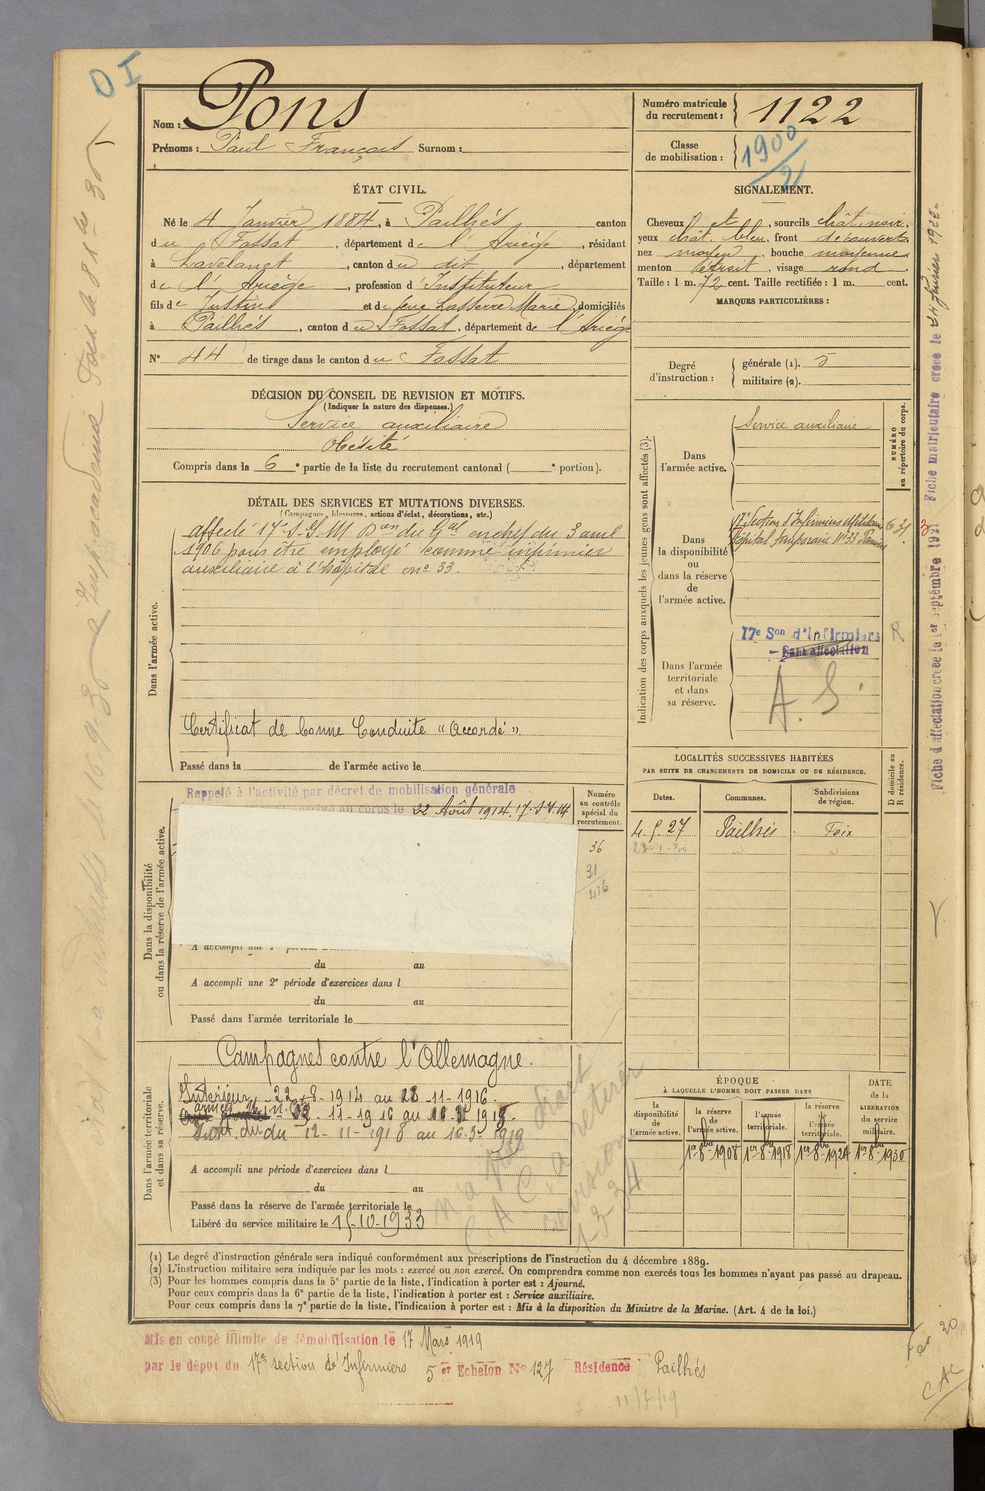 D I
Nom : Pons
Prénoms : Paul François Surnom :
Numéro matricule
du recrutement : 1122
Classe
de mobilisation : 1900/2
ÉTAT CIVIL.
Né le 4 Janvier 1884, à Pailhés canton
du Fossat, département de l'Ariège, résidant
à Lavelanet, canton du dit, département
de l'Ariège, profession d'Instituteur
fils de Justin et de feue Lasserre Marie, domiciliés
à Pailhés, canton du Fossat, département de l'Ariège
N° 44 de tirage dans le canton du Fossat
SIGNALEMENT.
Cheveux et, sourcils chât. noir,
yeux chât. bleu, front découvert
nez moyen, bouche moyenne
menton étroit, visage rond.
Taille : 1 m. 72 cent. Taille rectifiée : 1 m. cent.
MARQUES PARTICULIÈRES :
Degré
d'instruction :
générale (1). 5
militaire (2).
DÉCISION DU CONSEIL DE REVISION ET MOTIFS.
(Indiquer la nature des dispenses.)
Service auxiliaire
Obésité
Compris dans la 6e partie de la liste du recrutement cantonal ( e portion).
DÉTAIL DES SERVICES ET MUTATIONS DIVERSES.
(Campagnes, blessures, actions d'éclat, décorations, etc.)
Dans l'armée active.
affecté 17e S.I.M Don du Gal en chef du 3 avril
1906 pour être employé comme infirmier
auxiliaire à l'hôpital no 33.
Certificat de bonne Conduite "Accordé"
Passé dans la de l'armée active le
Indication des corps auxquels les jeunes gens sont affectés (3).
NUMÉRO
au répertoire du corps.
Dans
l'armée active.
Service auxiliaire
Dans
la disponibilité
ou
dans la réserve
de
l'armée active.
17e Section d'Infirmiers Militaires 631
Hôpital temporaire N° 33 Pamiers
Dans l'armée
territoriale
et dans
sa réserve.
17e Son d'Infirmiers R
- Sans affectation
A. S
LOCALITÉS SUCCESSIVES HABITÉES
PAR SUITE DE CHANGEMENTS DE DOMICILE OU DE RÉSIDENCE.
D domicile ou
R résidence.
Dates. Communes. Subdivisions
de région.
4.5.27 Pailhés Foix
Dans la disponibilité
ou dans la réserve de l'armée active.
Rappelé à l'activité par décret de mobilisation générale
au corps le 22 Août 1914. 17e S.I.M
Numéro
au contrôle
spécial du
recrutement.
36
31
416
A accompli une
du au
A accompli une 2e période d'exercices dans l
du au
Passé dans l'armée territoriale le
Dans l'armée territoriale
et dans sa réserve.
Campagnes contre l'Allemagne.
Intérieur 22-8-1914 au 28-11-1916.
-11-1916 au
du 12-11-1918 au 16-3-1919
A accompli une période d'exercices dans l
du au
Passé dans la réserve de l'armée territoriale le
Libéré du service militaire le 15-10-1933
ÉPOQUE
À LAQUELLE L'HOMME DOIT PASSER DANS
la
disponibilité
de
l'armée active.
la réserve
de
l'armée active.
l'armée
territoriale.
la réserve
de
l'armée
territoriale.
DATE
de la
LIBÉRATION
du service
militaire.
1er 8bre 1908 1er 8bre 1918 1er 8bre 1924 1er 8bre 1930
(1) Le degré d'instruction générale sera indiqué conformément aux prescriptions de l'instruction du 4 décembre 1889.
(2) L'instruction militaire sera indiquée par les mots : exercé ou non exercé. On comprendra comme non exercés tous les hommes n'ayant pas passé au drapeau.
(3) Pour les hommes compris dans la 5e partie de la liste, l'indication à porter est : Ajourné.
Pour ceux compris dans la 6e partie de la liste, l'indication à porter est : Service auxiliaire.
Pour ceux compris dans la 7e partie de la liste, l'indication à porter est : Mis à la disposition du Ministre de la Marine. (Art. 4 de la loi.)
Mis en congé illimité de démobilisation le 17 Mars 1919
par le dépôt du 17e section d'Infirmiers 5 er Echelon N° 127 Résidence Pailhés
11/5/19
CAC
Fiche d'affectation créée le 1er septembre 1921 Fiche matriculaire créée le 14 février 1922.